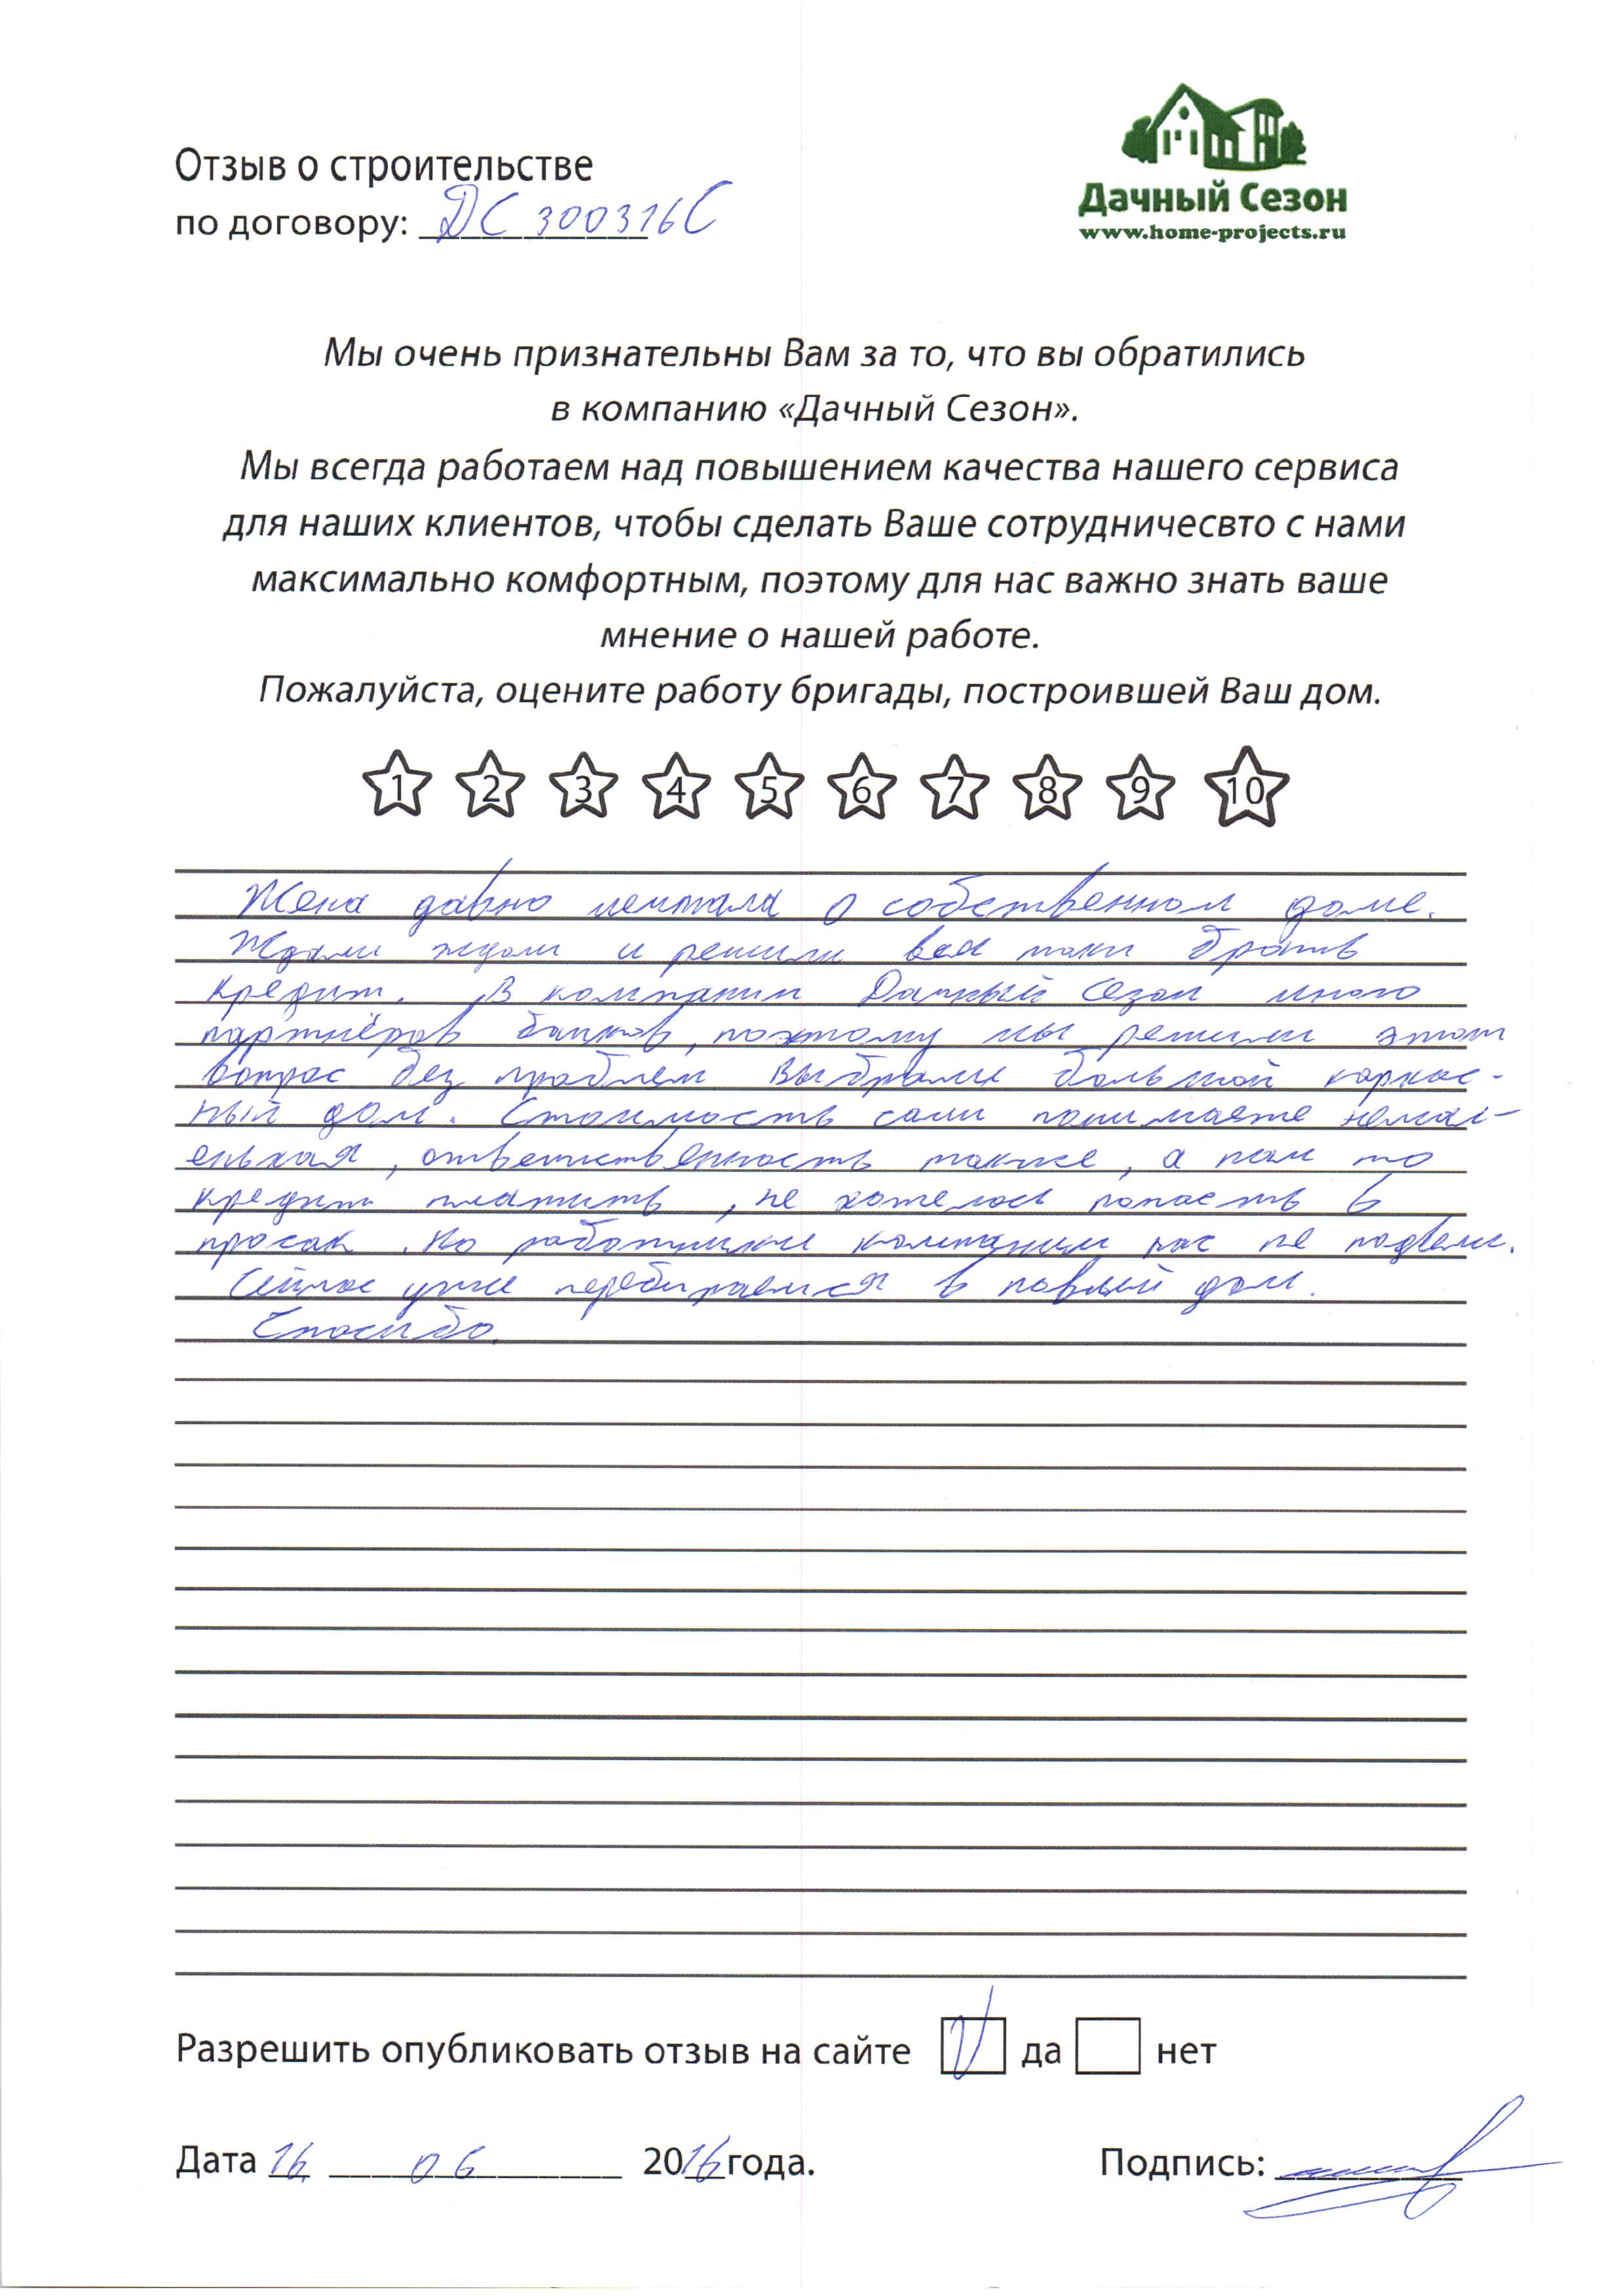 Отзыв о строительстве
по договору: ДС 300316С
Дачный Сезон
www.home-projects.ru
Мы очень признательны Вам за то, что вы обратились
в компанию «Дачный Сезон».
Мы всегда работаем над повышением качества нашего сервиса
для наших клиентов, чтобы сделать Ваше сотрудничесвто с нами
максимально комфортным, поэтому для нас важно знать ваше
мнение о нашей работе.
Пожалуйста, оцените работу бригады, построившей Ваш дом.
1 2 3 4 5 6 7 8 9 10
Жена давно мечтала о собственном доме.
Ждали ждали и решили всё таки брать
кредит. В компании Дачный Сезон много
партнёров банков, поэтому мы решили этот
вопрос без проблем Выбрали большой каркас-
ный дом. Стоимость сами понимаете немал-
енькая, ответственность также, а нам то
кредит платить, не хотелось попасть в
просак. Но работники компании нас не подвели.
Сейчас уже перебираемся в новый дом.
Спасибо.
Разрешить опубликовать отзыв на сайте V да нет
Дата 16 06 2016 года. Подпись: